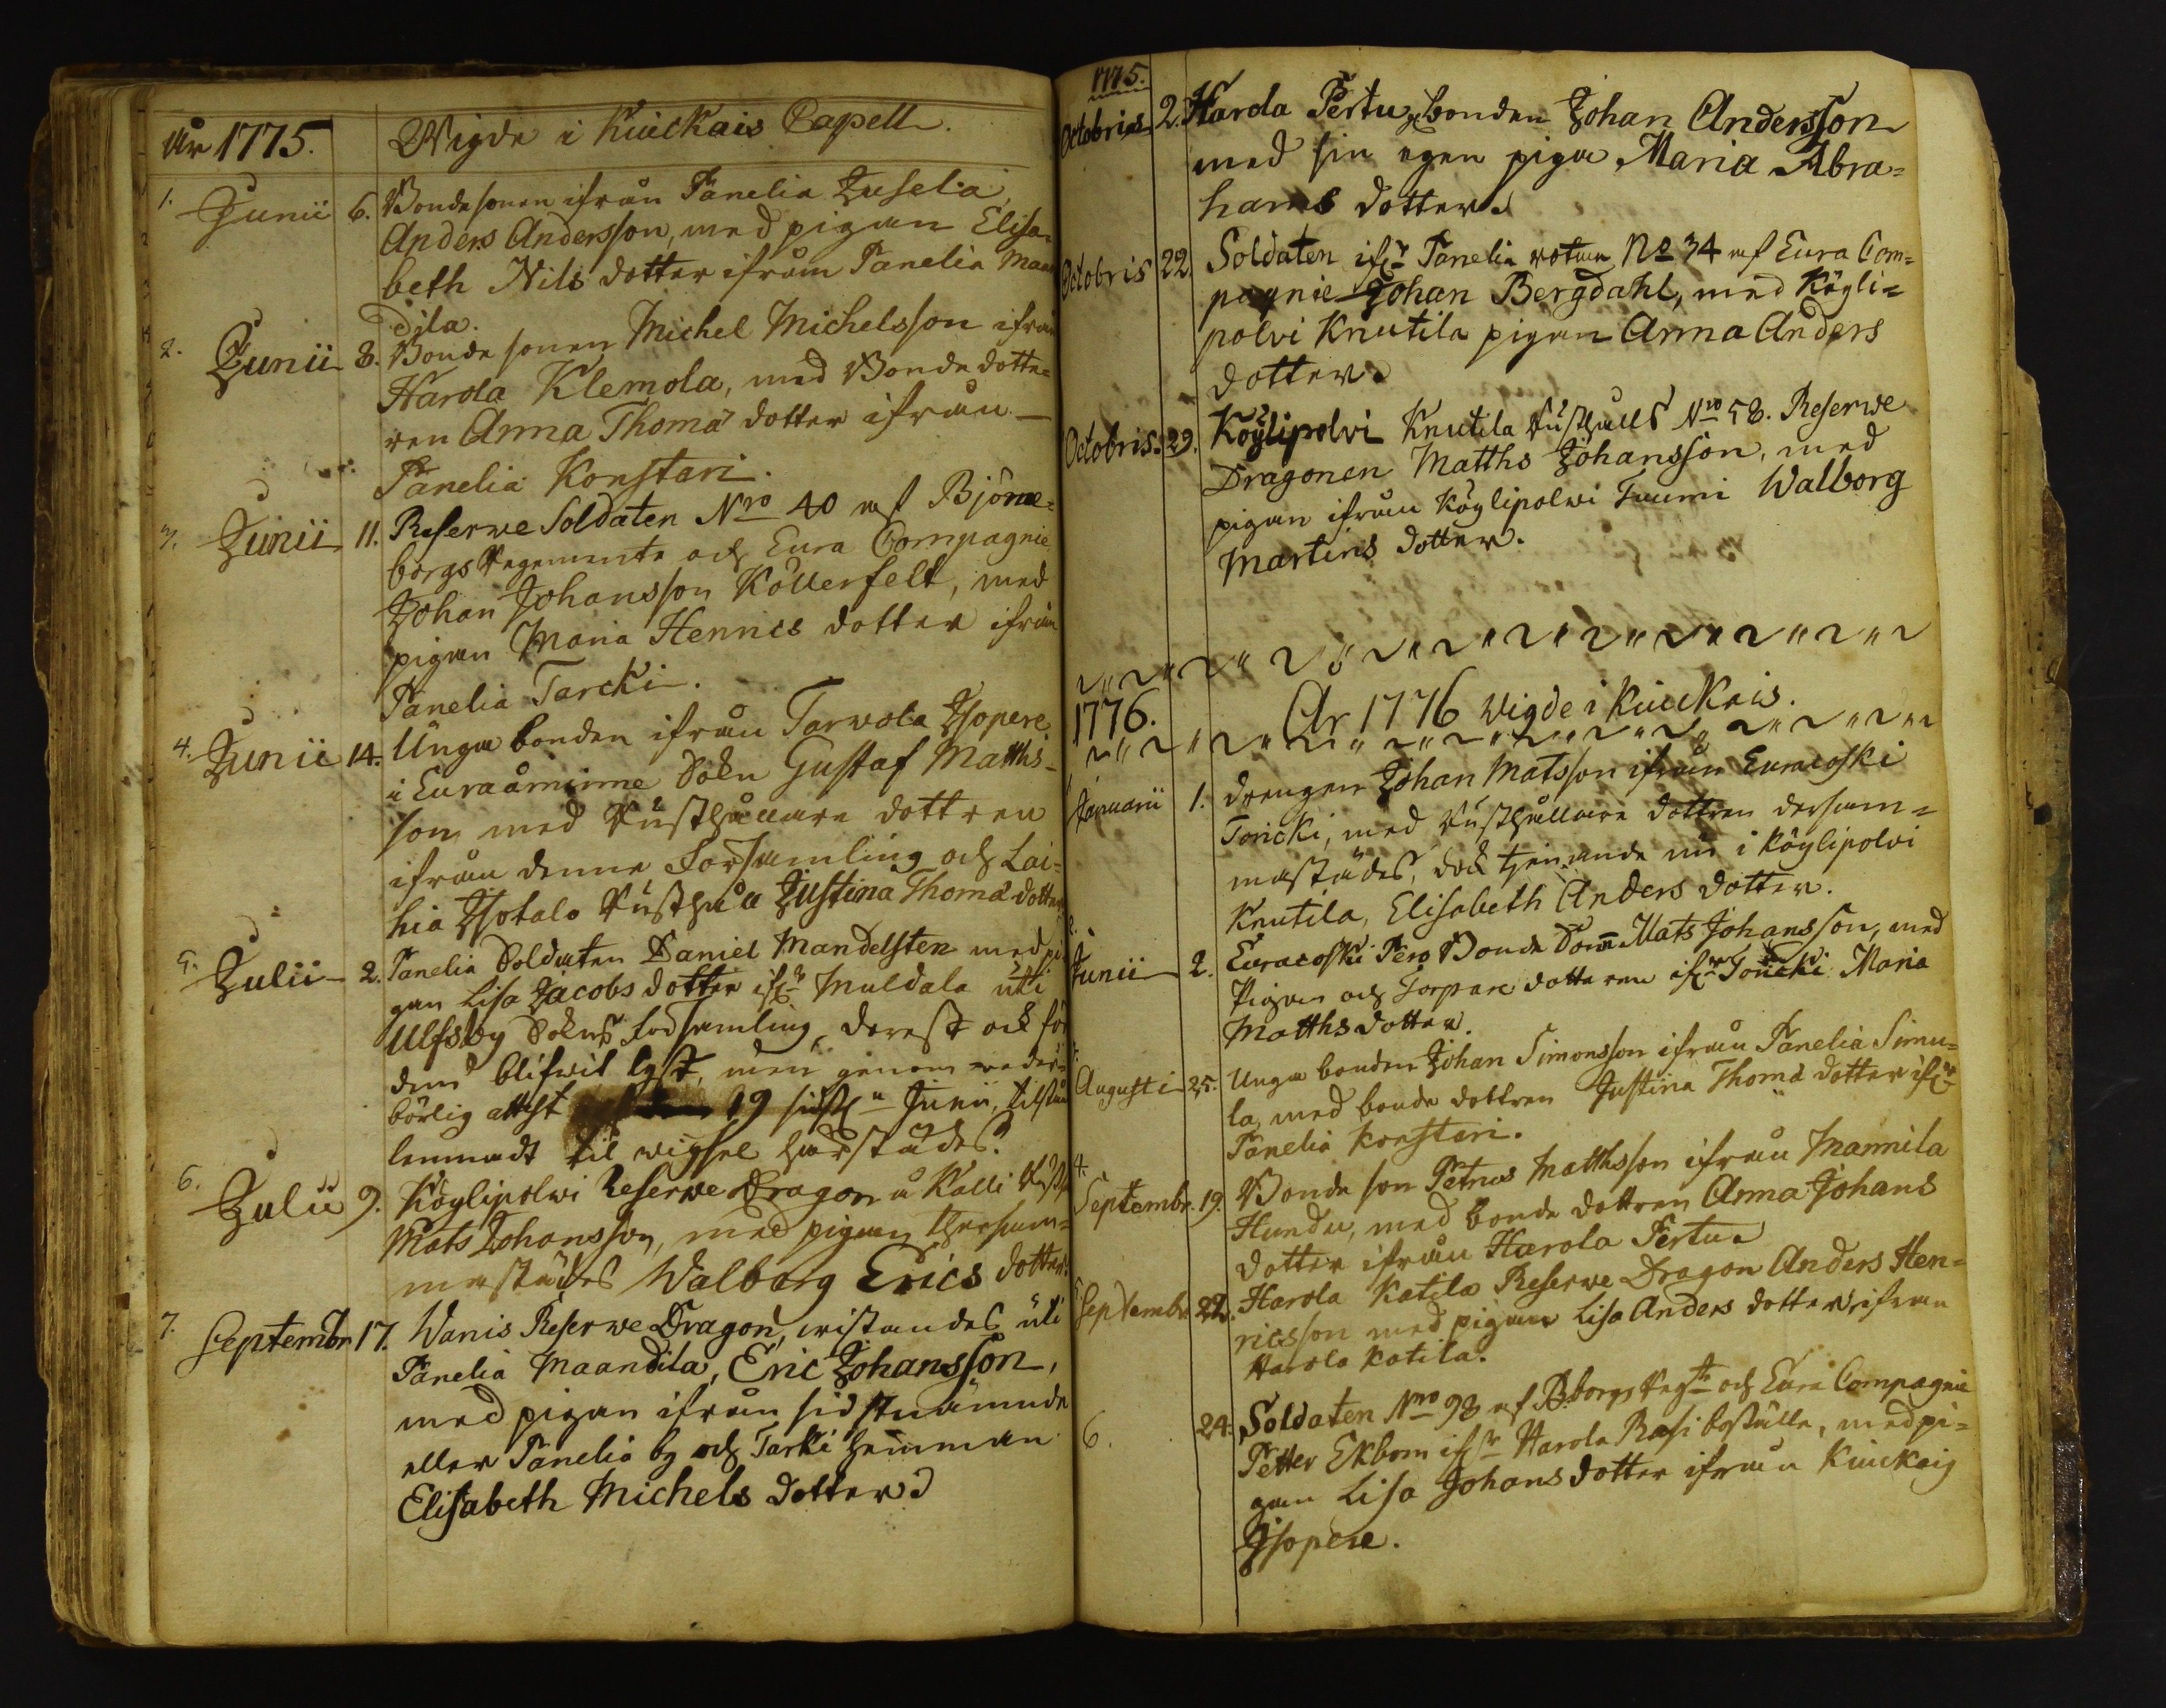 År 1775. Wigde i Kiuckais Capell.
1. Junii 6. Bondesonen ifrån Panelia Juselia,
Anders Andersson, med pigan Elisa=
beth Nils dotter ifrån Panelia Maan
dila.
2. Junii 8. Bonde sonen Michel Michelsson ifrån
Harola Klemola, med Bonde dotte=
ren Anna Thomæ dotter ifrån
Panelia Konstari.
3. Junii 11. Reserwe Soldaten Nro 40 af Björne=
borgs Regemente och Eura Compagnie
Johan Johansson Köllerfelt, med
pigan Maria Henrics dotter ifrån
Panelia Tarcki.
4. Junii 14. Unga bonden ifrån Tarwola Isopere
i Euraåminne Sokn Gustaf Matths=
son med Rusthållare dottren
ifrån denne Församling och Lai=
hia Isotalo Rusthåll Justina Thomæ dotter
5. Julii 2. Panelia Soldaten Daniel Mandelsten med pi
gan Lisa Jacobs dotter ifr Muldala uti
Ulfsby Sokns Församling, derest ock för
dem blifwit lyst, men genom weder=
börlig attest 19 sidstl Junii, tilstån
lemnadt til wigsel härstädes.
6. Julii 9. Köylipolwi Reserwe Dragon å Kalli
Mats Johansson, med pigan thersam=
mastädes Walborg Erics dotter.
7. Septembr 17. Wanis Reserwe Dragon, wistandes uti
Panelia Maandila, Eric Johansson,
med pigan ifrån sidstnämnde
eller Panelia by och Tarki hemman
Elisabeth Michels dotter
1775.
Octobris 2. Harola Pertu, bonden Johan Andersson
med sin egen piga Maria Abra=
hams dotter.
Octobris 22. Soldaten ifr Panelia rotan No 34 af Eura Com=
pagnie Johan Bergdahl, med Köyli=
polvi Knutila pigan Anna Anders
dotter.
Octobris. 29. Köylipolvi Knutila Rusthålls Nro 58. Reserwe
Dragonen Matths Johansson, med
pigan ifrån Köylipolwi Tuumi Walborg
Martins dotter.
1776. År 1776 wigde i Kiuckais.
Januarii 1. drengen Johan Matsson ifrån Euracoski
Toricki, med Rusthållare dottren dersam=
mastädes, dock tjenande nu i Köylipolvi
Knutila, Elisabeth Anders dotter.
2.
Junii 2. Euracoski Pers Bonde Son Mats Johansson, med
Pigan och Torpare dotteren ifr Toricki Maria
Matths dotter.
Augusti 25. Unga bonden Johan Simonsson ifrån Panelia Simu=
la, med bonde dottren Justina Thomæ dotter ifr
Panelia Konstari.
4.
Septembr. 19. Bonde son Petrus Matthsson ifrån Mannila
Hundu, med bonde dottren Anna Johans
dotter ifrån Harola Pertu.
Septembr 22. Harola Katila Reserwe Dragon Anders Hen=
ricsson med pigan Lisa Anders dotter ifrån
Harola Katila.
6. 24. Soldaten Nro 98 af B:borgs Regte och Eura Compagnie
Petter Ekbom ifr Harola Rasi boställe, med pi=
gan Lisa Johans dotter ifrån Kiuckais
Isopere.